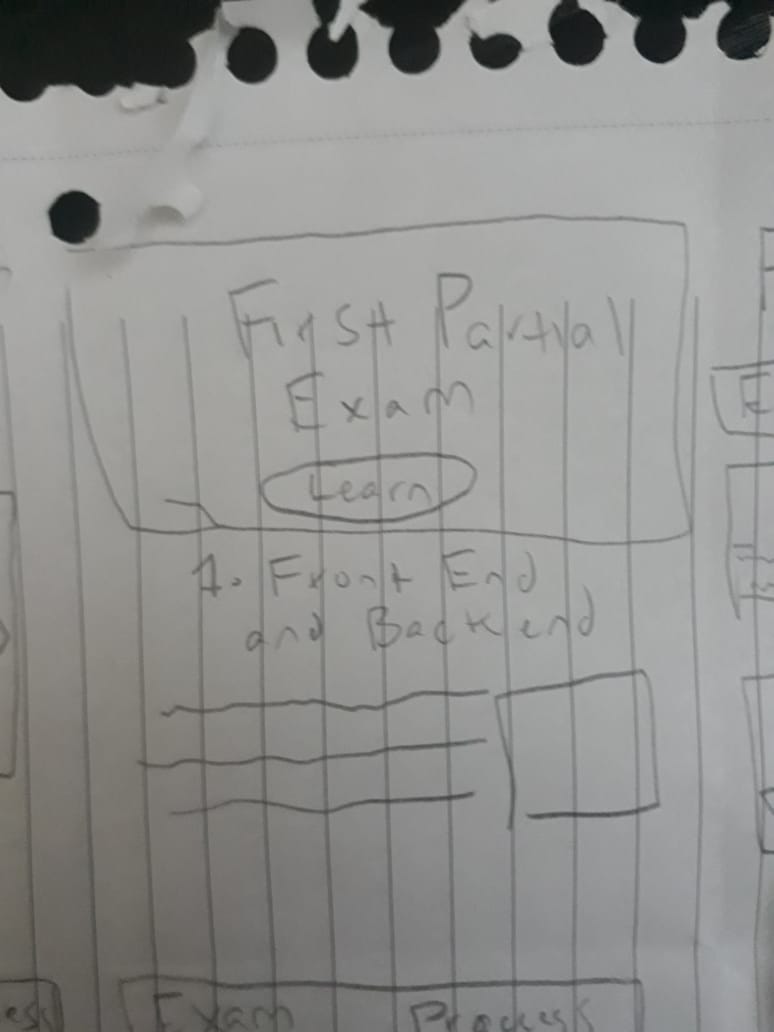 First Partial
Exam
Learn
1. Front End
and Backend
Exam